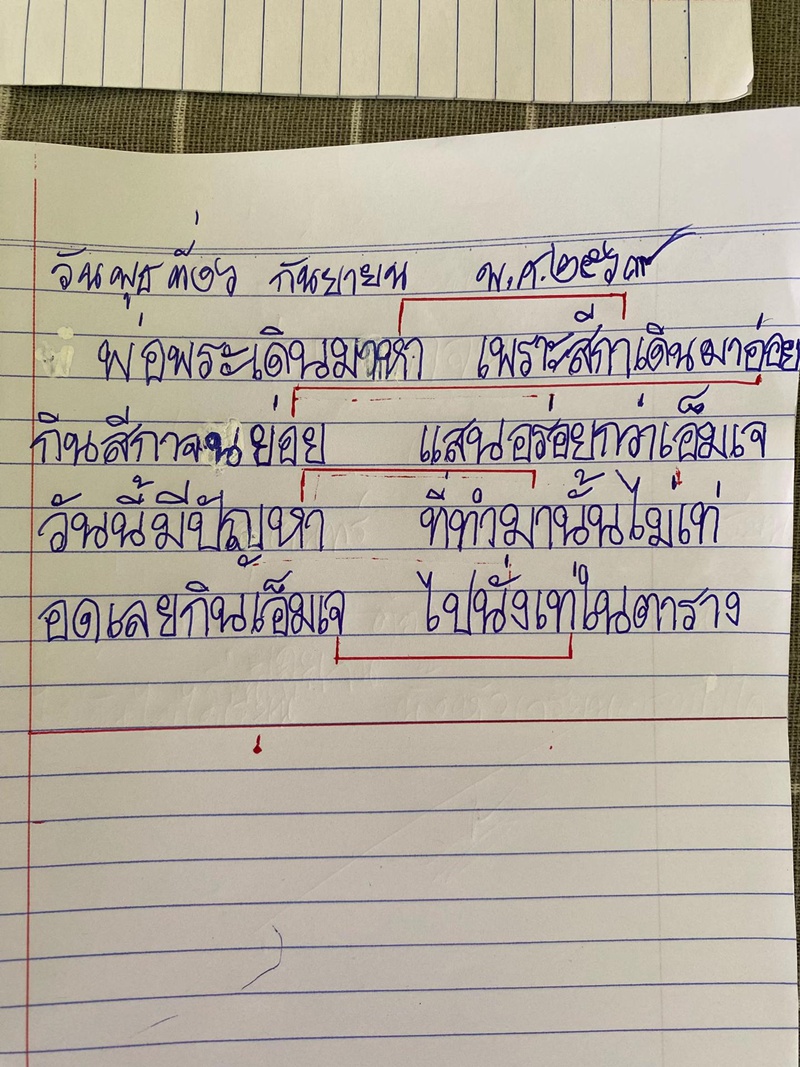 วันพุธ ที่ ๑๖ กันยายน พ.ศ.๒๕๖๓
พ่อพระเดินมาหา เพราะสีกาเดินมาอ่อย
กินสีกาจนย่อย แสนอร่อยกว่าเอ็มเจ
วันนี้มีปัญหา ที่ทำมานั้นไม่เท่
อดเลยกินเอ็มเจ ไปนั่งเท่ในตาราง